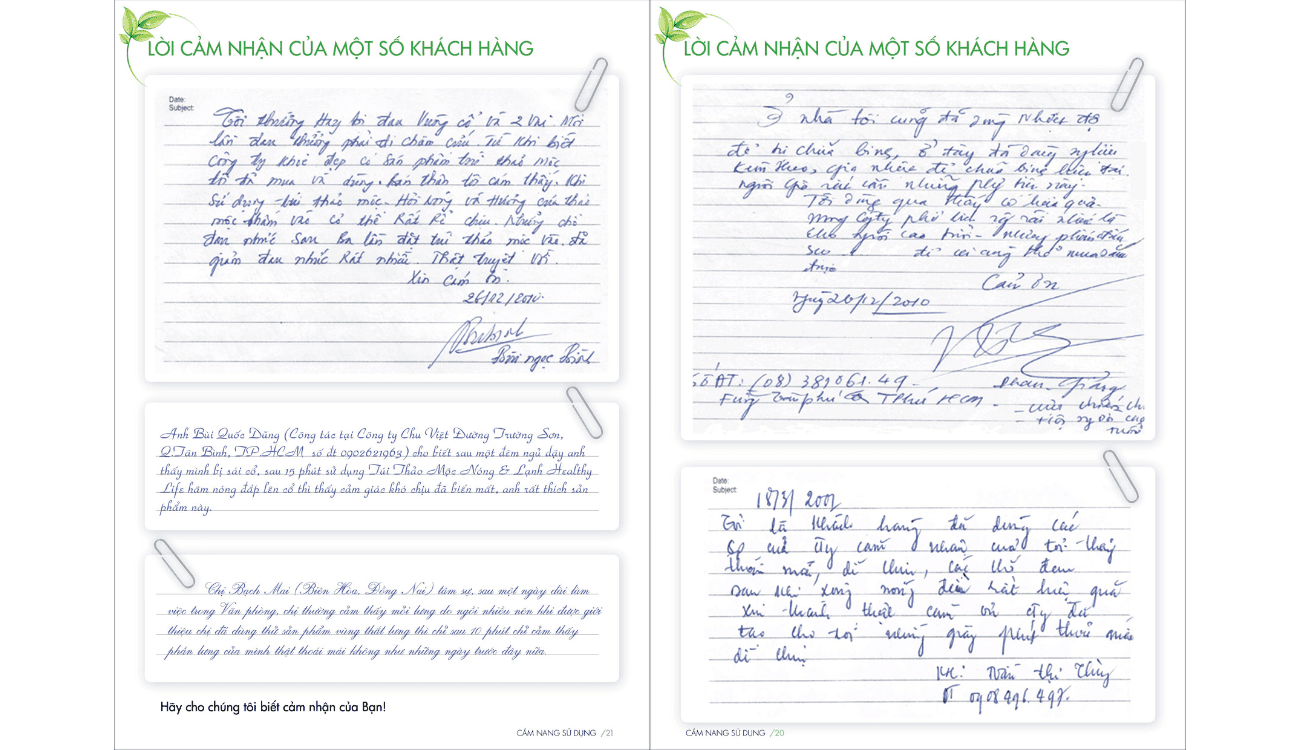 LỜI CẢM NHẬN CỦA MỘT SỐ KHÁCH HÀNG
Date:
Subject:
Tôi thường Hay bị đau Vương cổ và 2 Vai Mỗi
lần đau thường phải đi châm cứu. Từ khi biết
Công ty Khoẻ đẹp có sản phẩm túi thảo mộc
tôi đã mua và dùng. bản thân tôi cảm thấy. Khi
Sử dụng túi thảo mộc. Hơi nóng và Hương của thảo
mộc thấm vào cơ thể Rất dễ chịu. Những chỗ
đau nhức Sau ba lần đặt túi thảo mộc vào. đã
giảm đau nhức Rất nhiều. Thật tuyệt vời.
Xin cám ơn.
26/12/2010.
Bùi ngọc Bình
Anh Bùi Quốc Dũng (Công tác tại Công ty Chu Việt Đường Trường Sơn,
Q.Tân Bình, TP.HCM số đt 0902621963) cho biết sau một đêm ngủ dậy anh
thấy mình bị sái cổ, sau 15 phút sử dụng Túi Thảo Mộc Nóng & Lạnh Healthy
Life hâm nóng đắp lên cổ thì thấy cảm giác khó chịu đã biến mất, anh rất thích sản
phẩm này.
Chị Bạch Mai (Biên Hòa, Đồng Nai) tâm sự, sau một ngày dài làm
việc trong Văn phòng, chị thường cảm thấy mỏi lưng do ngồi nhiều nên khi được giới
thiệu chị đã dùng thử sản phẩm vùng thắt lưng thì chỉ sau 10 phút chị cảm thấy
phần lưng của mình thật thoải mái không như những ngày trước đây nữa.
Hãy cho chúng tôi biết cảm nhận của Bạn!
CẨM NANG SỬ DỤNG /21
LỜI CẢM NHẬN CỦA MỘT SỐ KHÁCH HÀNG
Ở nhà tôi cũng đã dùng nhiều
để chữa bệnh, ở đây đã dùng
người già rất cần những
Tôi dùng qua thấy có hiệu quả.
mong Cty phổ biến rộng rãi nhất là
cho người cao tuổi - những
để ai cũng
được
Cám ơn
Ngày 26/12/2010
Số ĐT: (08) 381061.49 -
HCM -
Date:
Subject:
18/3/2007
Tôi là khách hàng đã dùng các
sp của Cty cảm nhận của tôi thấy
thoải mái, dễ chịu, các
sau khi xông nóng đều rất hiệu quả
xin thành thật cảm ơn Cty đã
tạo cho tôi những giây phút thoải mái
dễ chịu
KH: Trần thị Thùy
ĐT 0908496.497.
CẨM NANG SỬ DỤNG /20